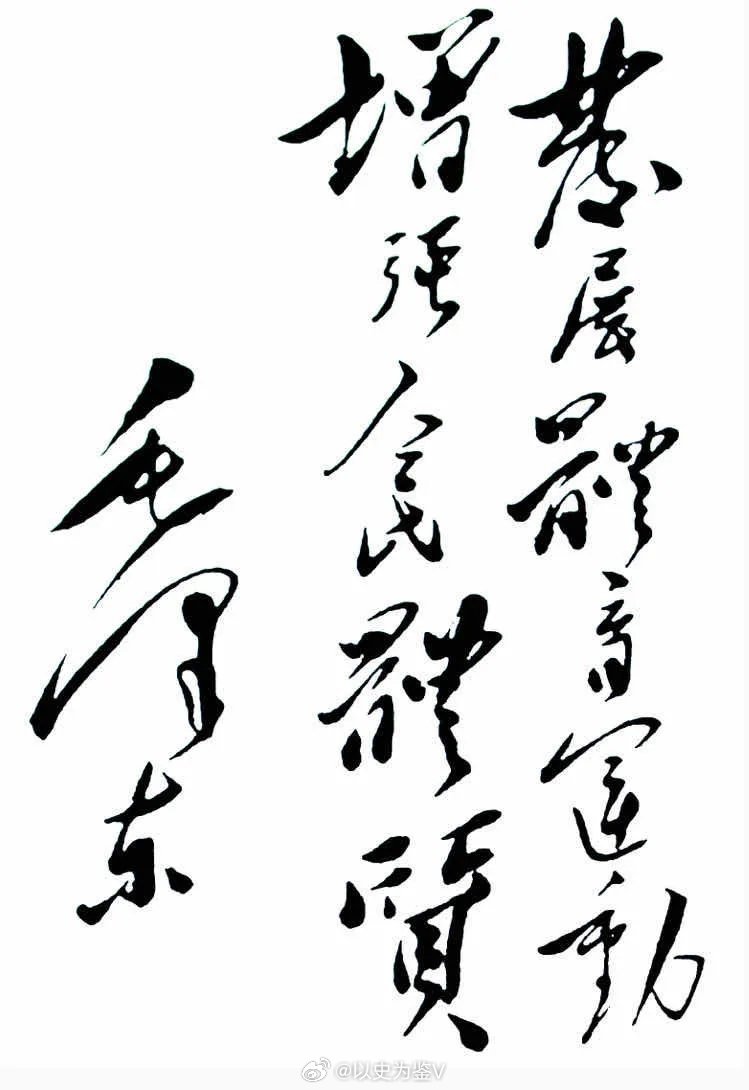 發展體育運動
增强人民體質
毛泽东
@以史为鉴V